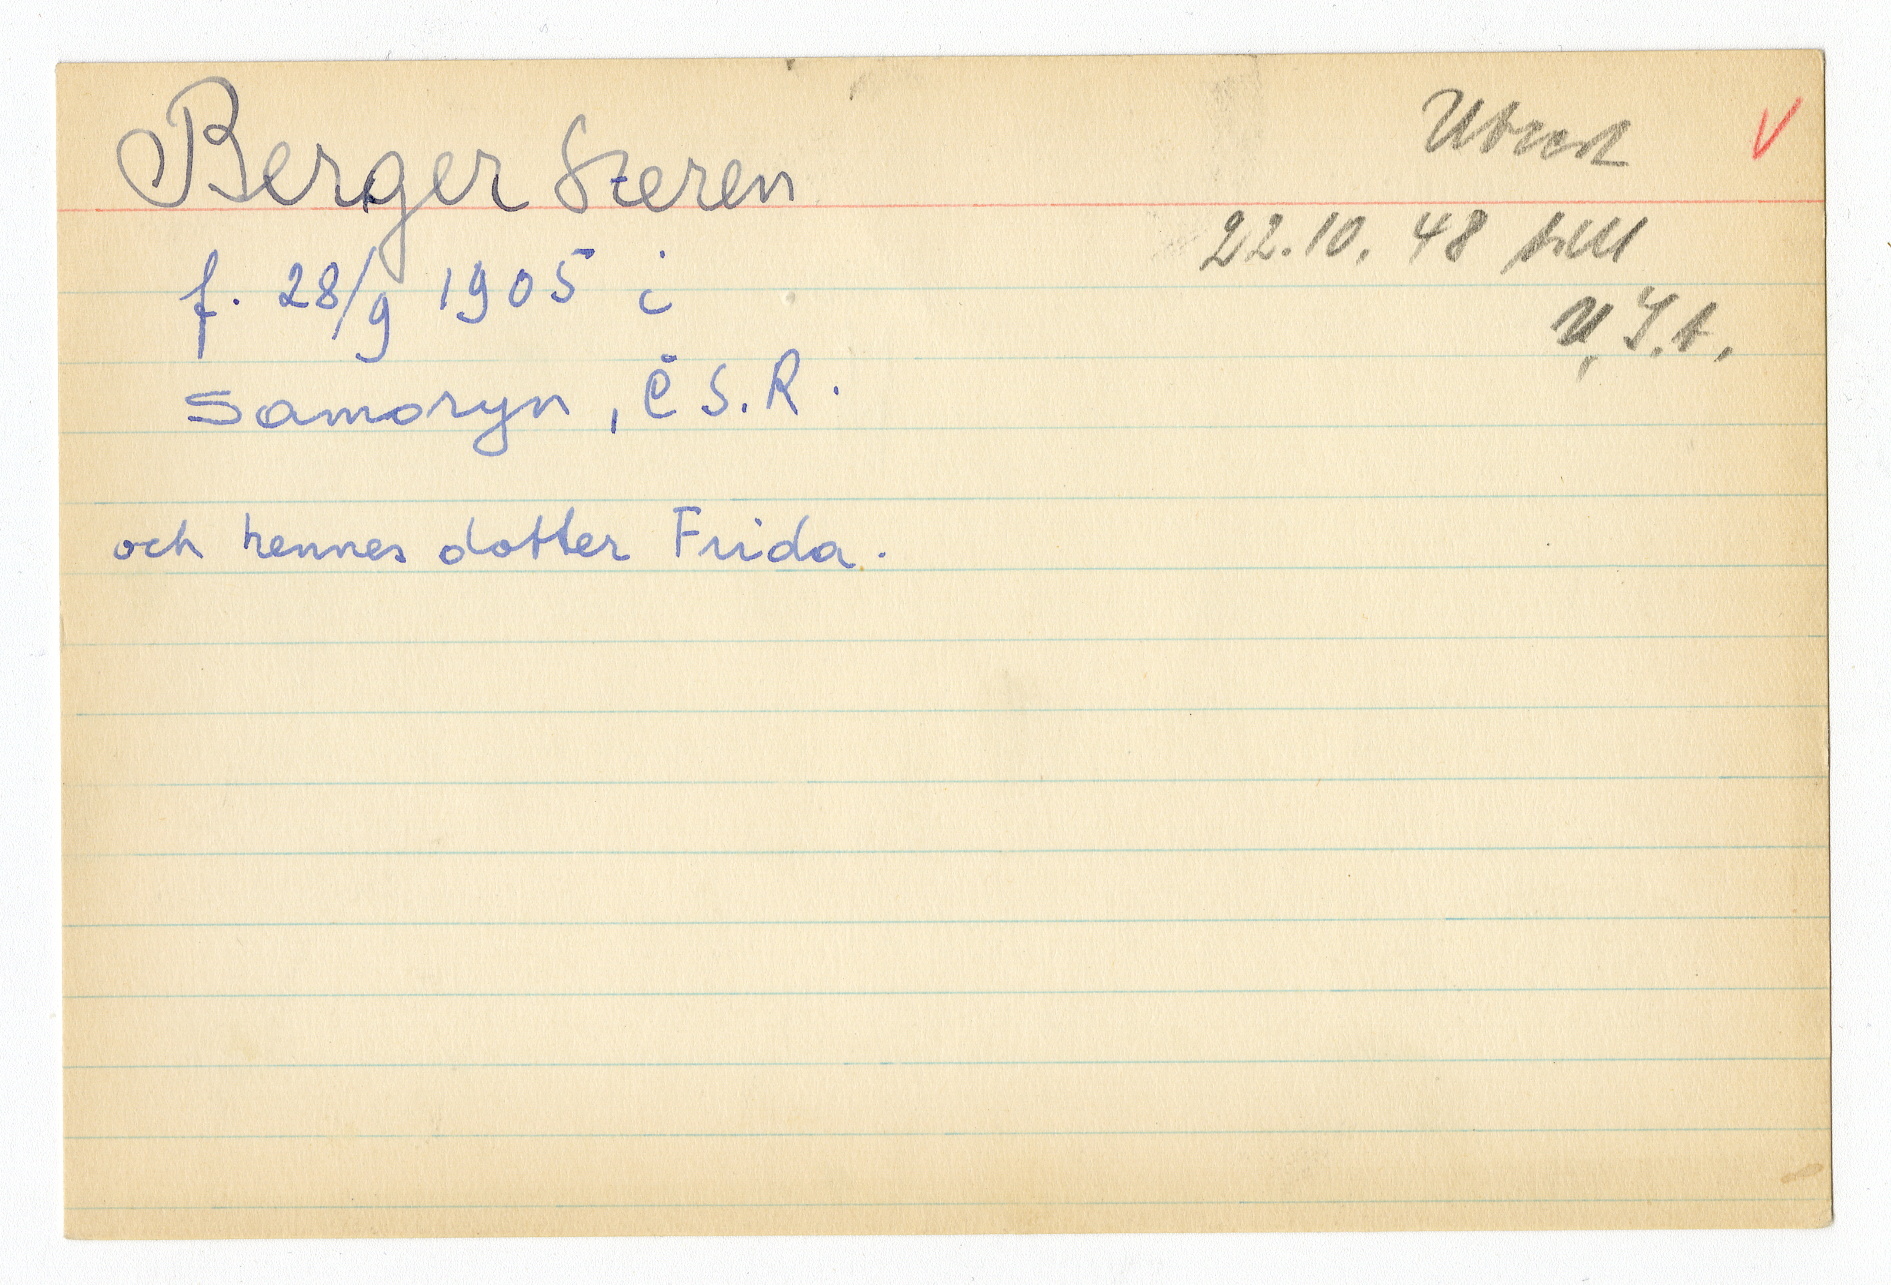 Berger Szeren
Utrest
22.10.48 till
U.S.A.
f. 28/9 1905 i
Samoryn, Č S.R.
och hennes dotter Frida.